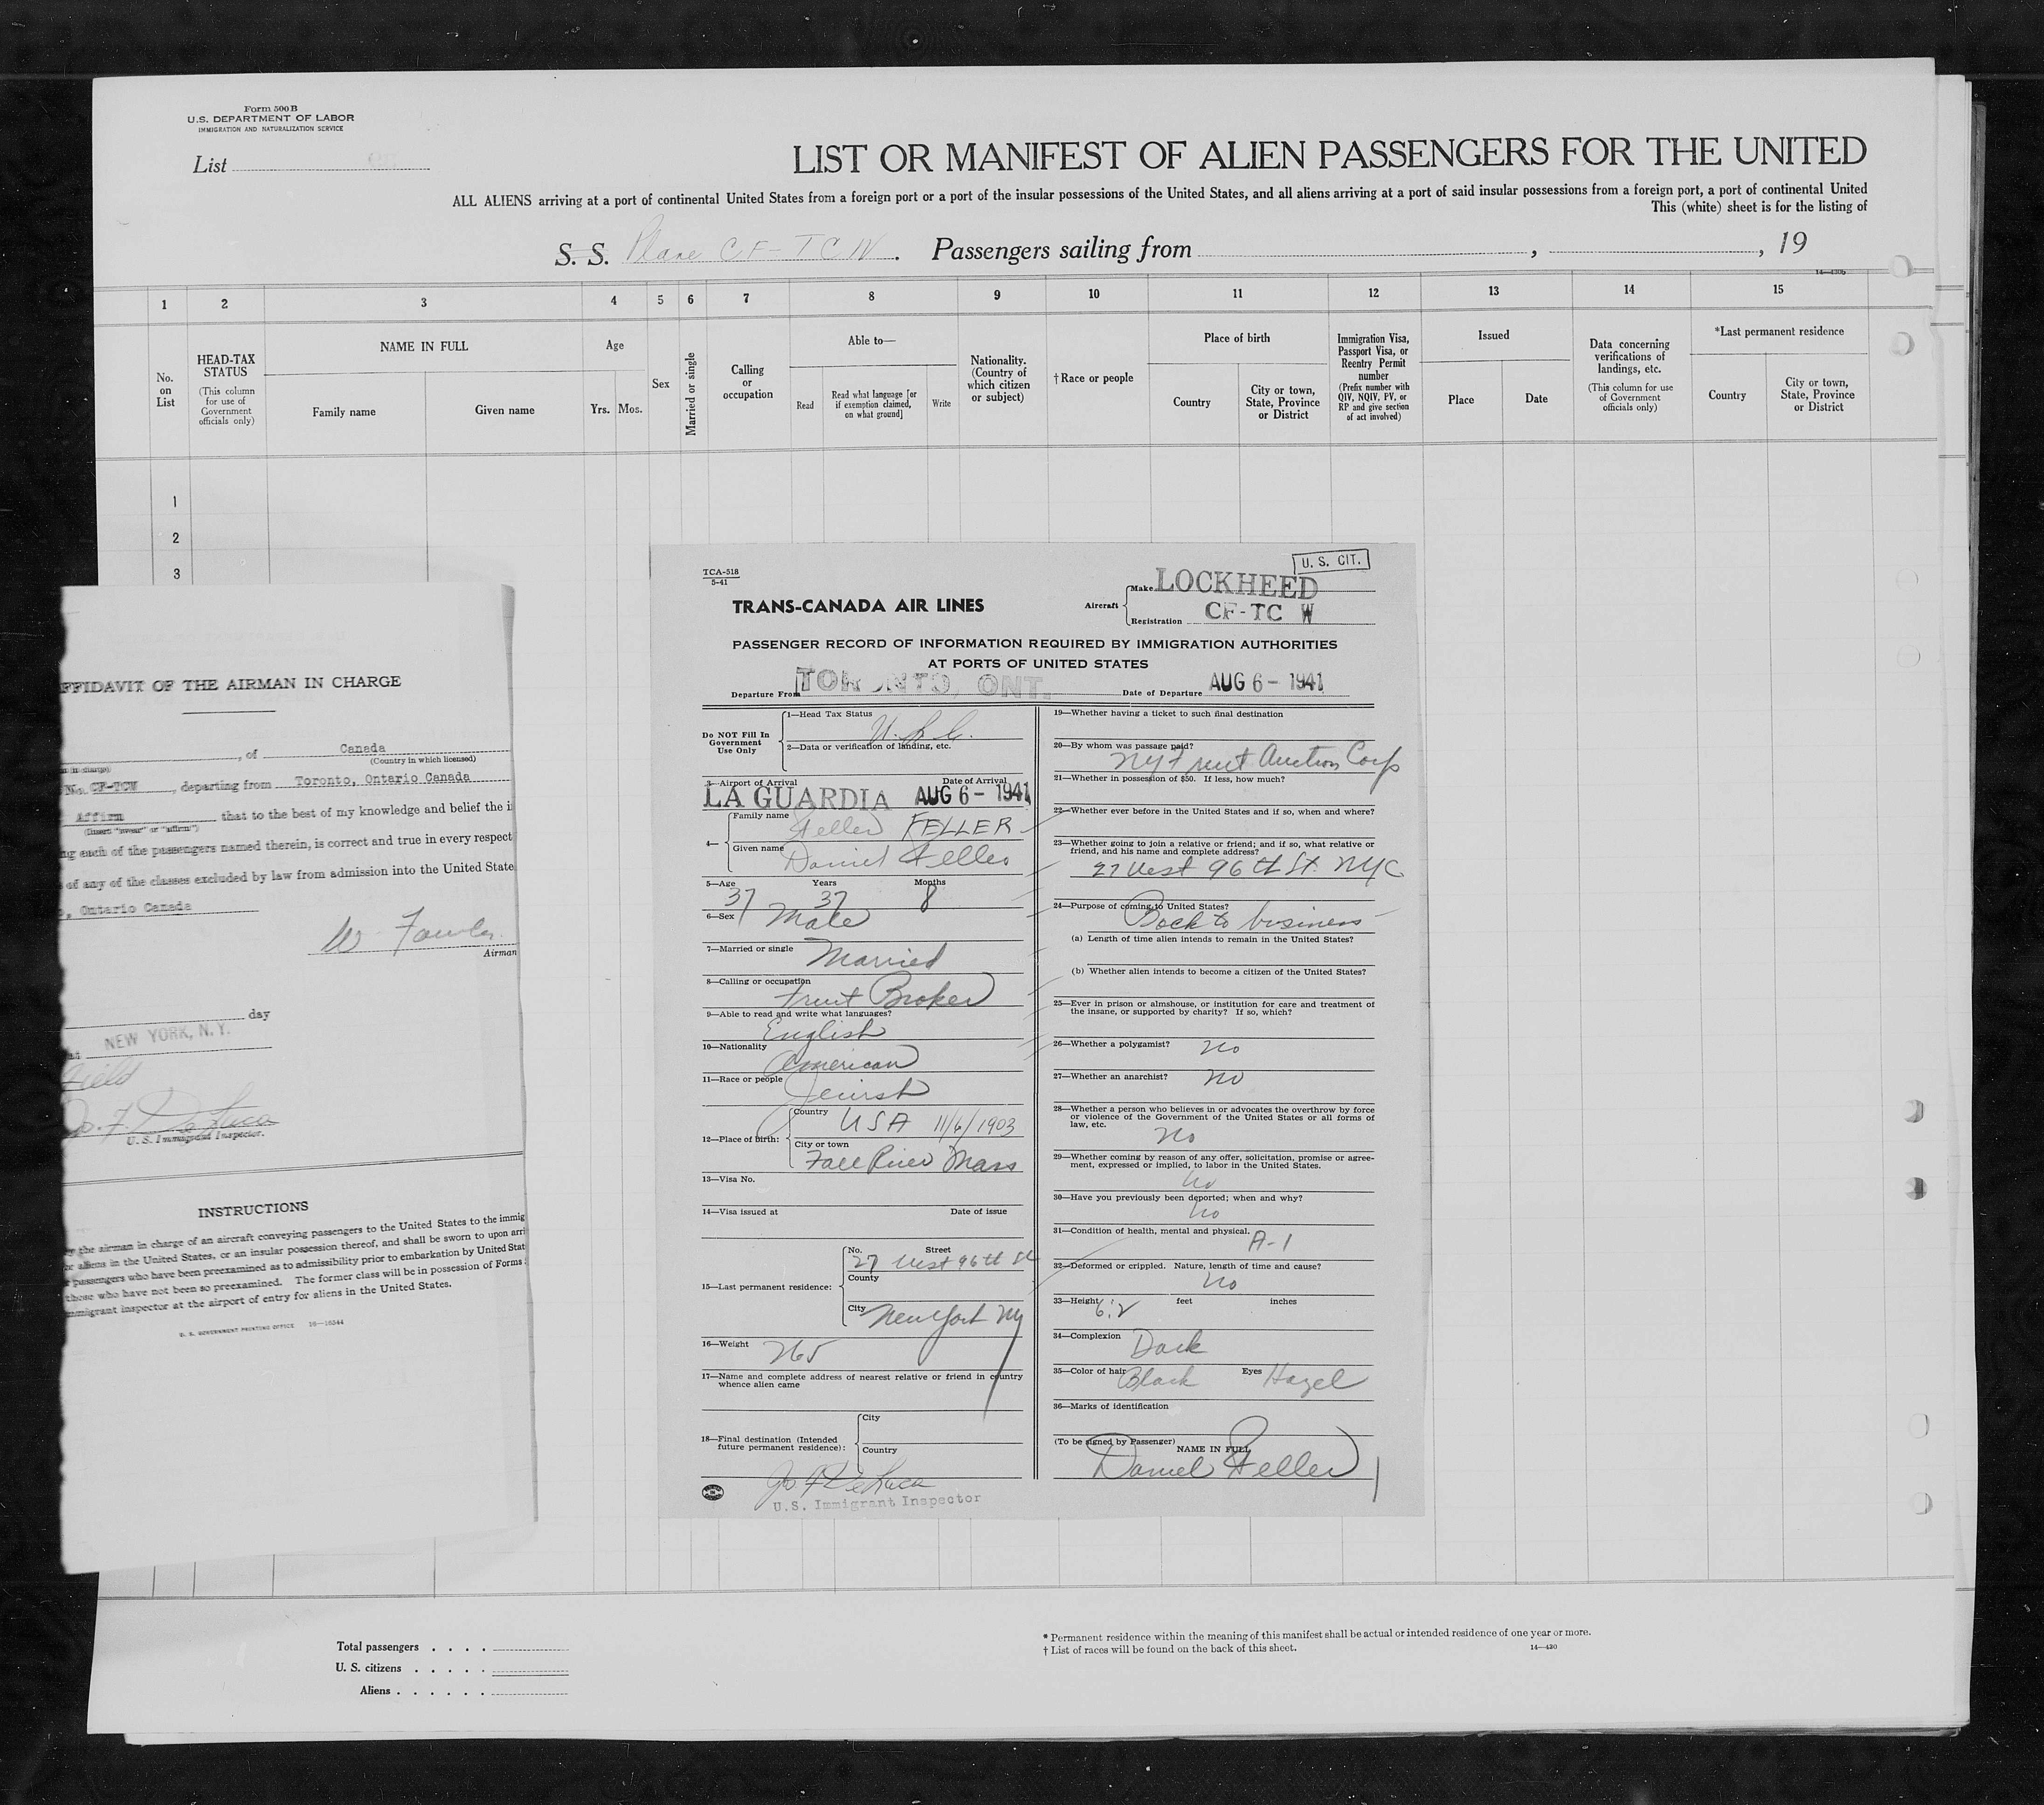 Form 500 B
U.S. DEPARTMENT OF LABOR
IMMIGRATION AND NATURALIZATION SERVICE
List
LIST OR MANIFEST OF ALIEN PASSENGERS FOR THE UNITED
ALL ALIENS arriving at a port of continental United States from a foreign port or a port of the insular possessions of the United States, and all aliens arriving at a port of said insular possessions from a foreign port, a port of continental United
This (white) sheet is for the listing of
S. S. Plane CF-TCW. Passengers sailing from , , 19
14—430b
1 2 3 4 5 6 7 8 9 10 11 12 13 14 15
No. on List
HEAD-TAX STATUS
(This column for use of Government officials only)
NAME IN FULL
Family name Given name
Age
Yrs. Mos.
Sex
Married or single
Calling or occupation
Able to—
Read
Read what language [or if exemption claimed, on what ground]
Write
Nationality. (Country of which citizen or subject)
†Race or people
Place of birth
Country
City or town, State, Province or District
Immigration Visa, Passport Visa, or Reentry Permit number
(Prefix number with QIV, NQIV, PV, or RP and give section of act involved)
Issued
Place Date
Data concerning verifications of landings, etc.
(This column for use of Government officials only)
*Last permanent residence
Country
City or town, State, Province or District
1
2
3
FFIDAVIT OF THE AIRMAN IN CHARGE
, of Canada
(Country in which licensed)
No. CF-TCW , departing from Toronto, Ontario Canada
Affirm that to the best of my knowledge and belief the i
(Insert "swear" or "affirm")
ng each of the passengers named therein, is correct and true in every respect
of any of the classes excluded by law from admission into the United State
, Ontario Canada
W Fowler
Airman
day
NEW YORK, N.Y.
Field
Jo. F. DeLuca
U.S. Immigrant Inspector.
INSTRUCTIONS
the airman in charge of an aircraft conveying passengers to the United States to the immig
or aliens in the United States, or an insular possession thereof, and shall be sworn to upon arri
passengers who have been preexamined as to admissibility prior to embarkation by United Stat
those who have not been so preexamined. The former class will be in possession of Forms
mmigrant inspector at the airport of entry for aliens in the United States.
U. S. GOVERNMENT PRINTING OFFICE 16—16544
TCA-518
5-41
U. S. CIT.
TRANS-CANADA AIR LINES
Aircraft
Make LOCKHEED
Registration CF-TC W
PASSENGER RECORD OF INFORMATION REQUIRED BY IMMIGRATION AUTHORITIES
AT PORTS OF UNITED STATES
Departure From TORONTO, ONT. Date of Departure AUG 6 - 1941
Do NOT Fill In
Government
Use Only
1—Head Tax Status
2—Data or verification of landing, etc.
3—Airport of Arrival Date of Arrival
LA GUARDIA AUG 6 - 1941
4—
Family name Feller FELLER
Given name Daniel Feller
5—Age Years Months
37 37 8
6—Sex Male
7—Married or single Married
8—Calling or occupation Fruit Broker
9—Able to read and write what languages?
English
10—Nationality American
11—Race or people Jewish
12—Place of birth:
Country USA 11/6/1903
City or town
Fall River Mass
13—Visa No.
14—Visa issued at Date of issue
15—Last permanent residence:
No. Street
27 West 96th St
County
City New York NY
16—Weight 265
17—Name and complete address of nearest relative or friend in country
whence alien came
18—Final destination (Intended
future permanent residence):
City
Country
Jo F DeLuca
U.S. Immigrant Inspector
19—Whether having a ticket to such final destination
20—By whom was passage paid?
NY Fruit Auction Corp
21—Whether in possession of $50. If less, how much?
22—Whether ever before in the United States and if so, when and where?
23—Whether going to join a relative or friend; and if so, what relative or
friend, and his name and complete address?
27 West 96th St. NYC
24—Purpose of coming to United States?
Back to business
(a) Length of time alien intends to remain in the United States?
(b) Whether alien intends to become a citizen of the United States?
25—Ever in prison or almshouse, or institution for care and treatment of
the insane, or supported by charity? If so, which?
26—Whether a polygamist? No
27—Whether an anarchist? No
28—Whether a person who believes in or advocates the overthrow by force
or violence of the Government of the United States or all forms of
law, etc.
No
29—Whether coming by reason of any offer, solicitation, promise or agree-
ment, expressed or implied, to labor in the United States.
No
30—Have you previously been deported; when and why?
No
31—Condition of health, mental and physical.
A-1
32—Deformed or crippled. Nature, length of time and cause?
No
33—Height 6:2 feet inches
34—Complexion Dark
35—Color of hair Black Eyes Hazel
36—Marks of identification
(To be signed by Passenger)
NAME IN FULL
Daniel Feller
Total passengers . . . .
U. S. citizens . . . . .
Aliens . . . . . .
* Permanent residence within the meaning of this manifest shall be actual or intended residence of one year or more.
† List of races will be found on the back of this sheet.
14—430